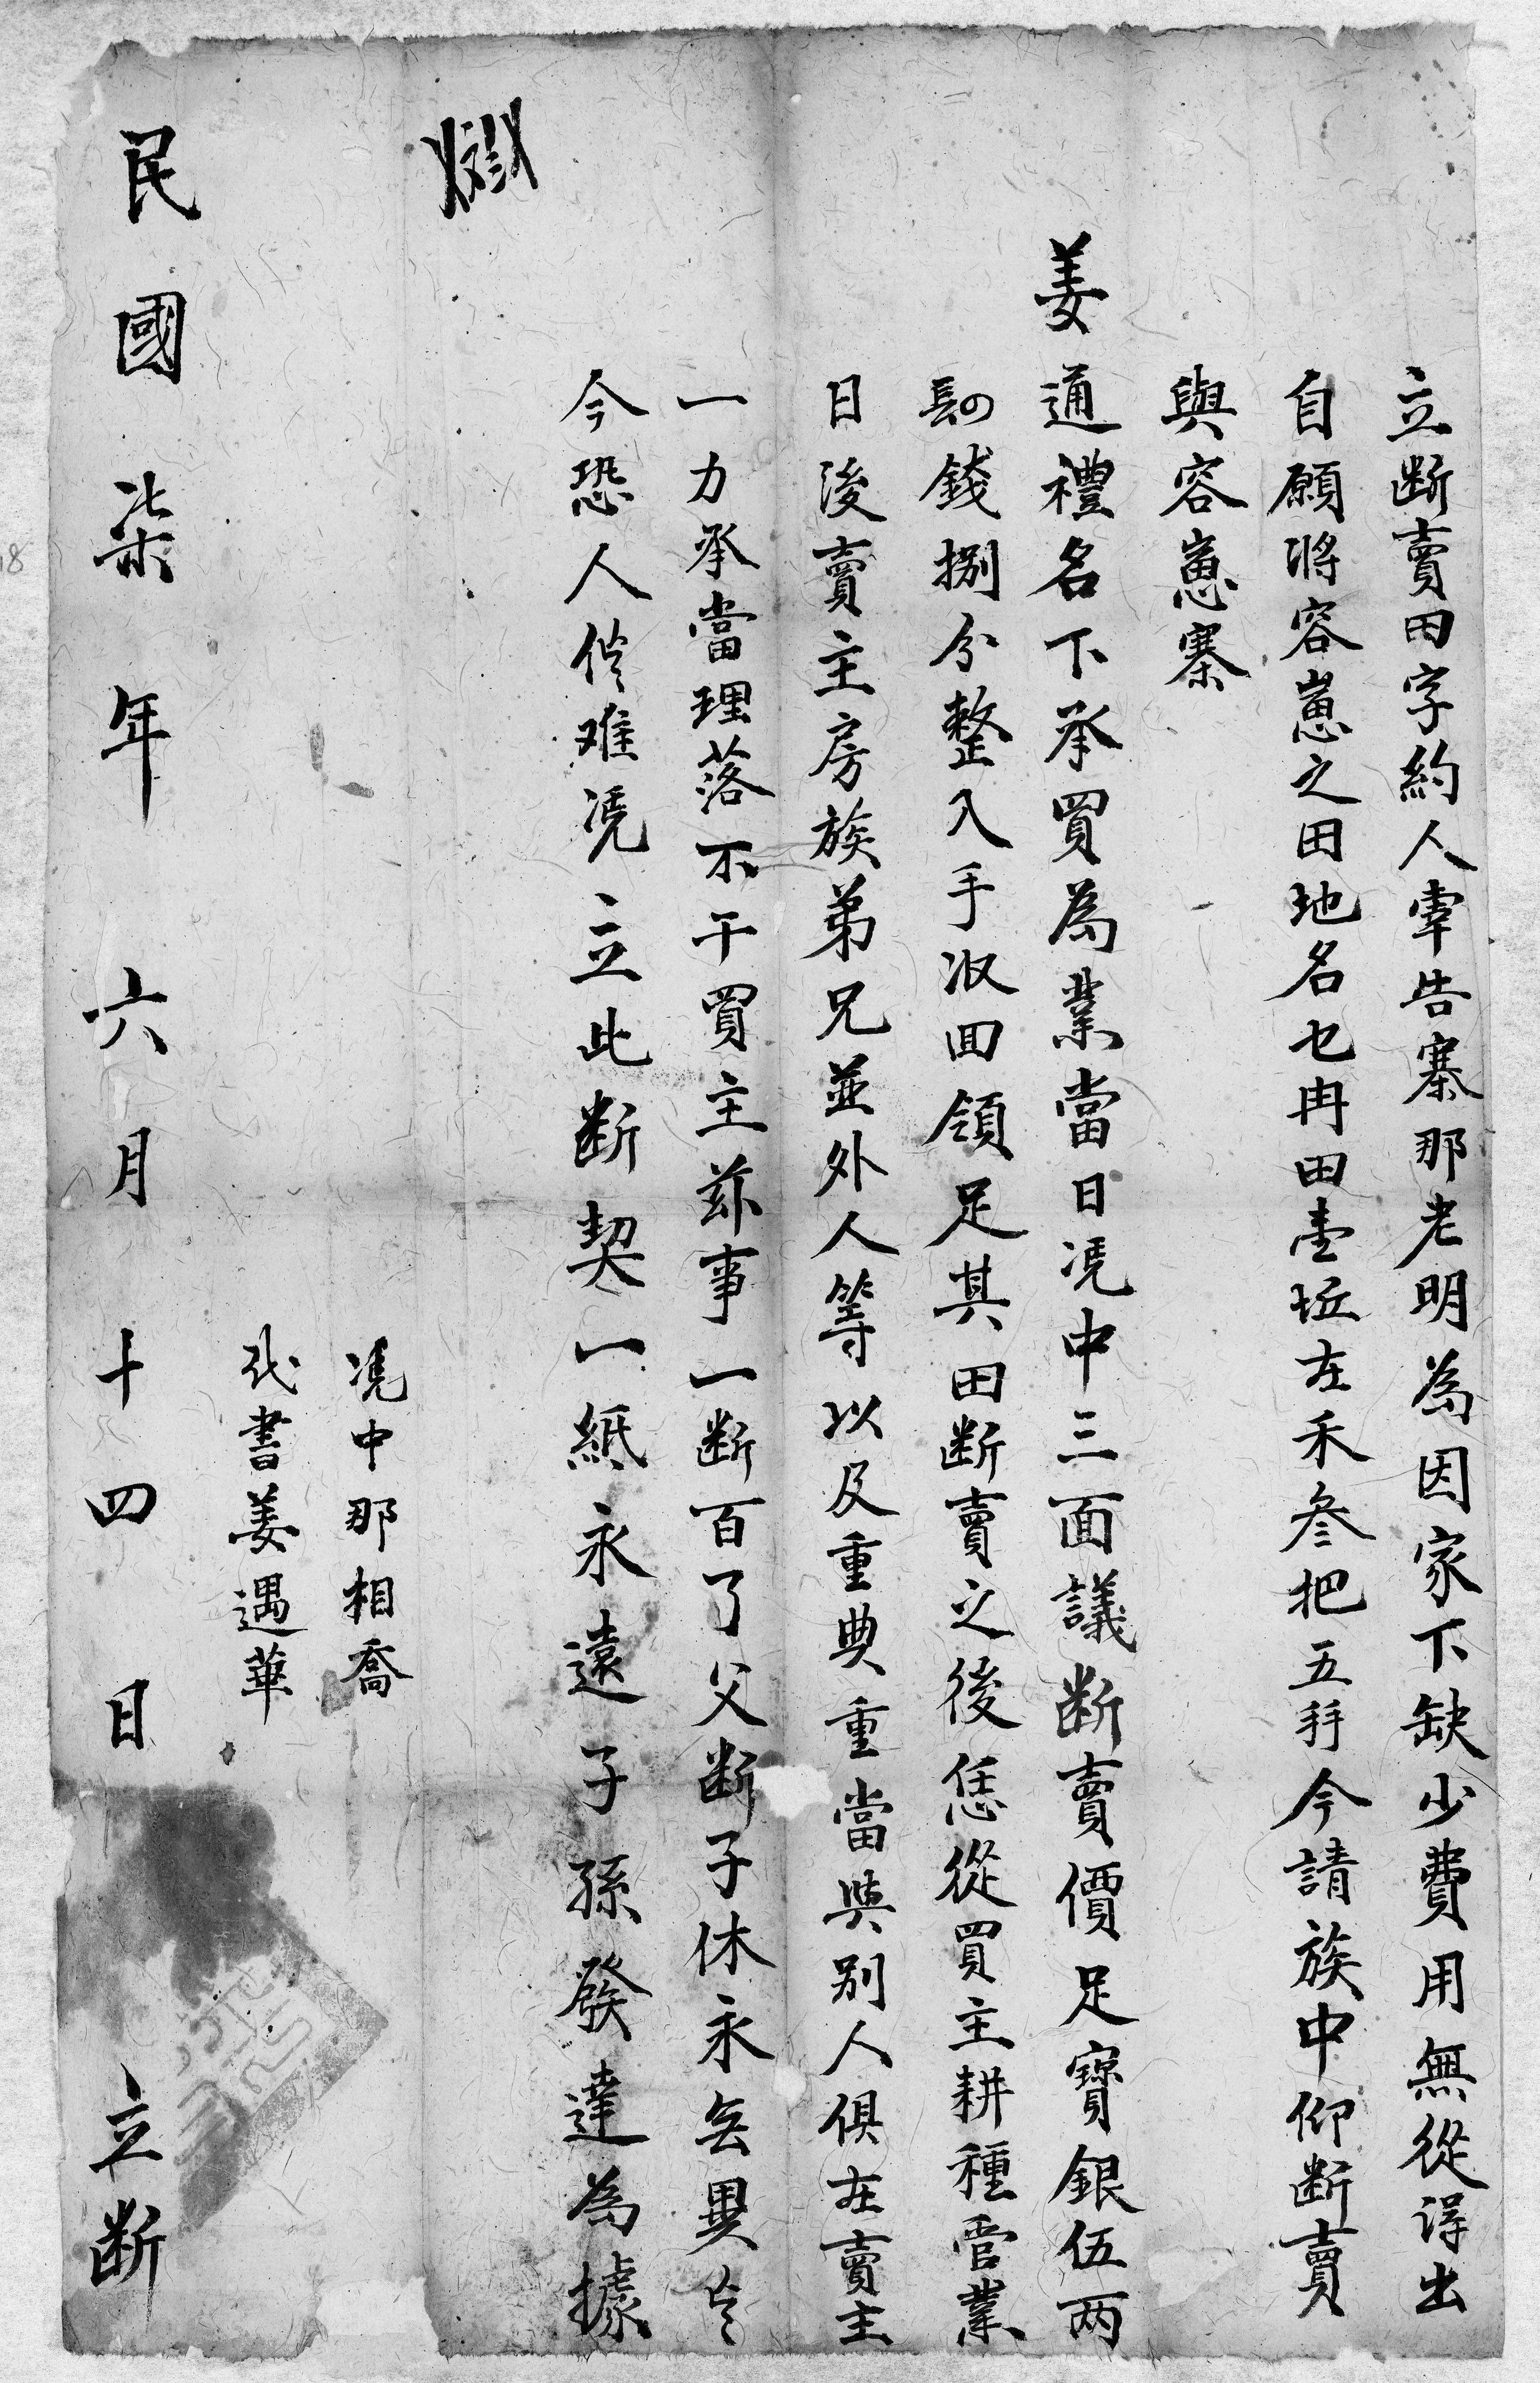 立断賣田字約人宰告寨那老明為因家下缺少費用無從得出
自願將容嵬之田地名乜冉田壹坵在禾叁把五籽今請族中仰断賣
與容嵬寨
姜通禮名下承買為業當日凴中三面議断賣價足寶銀伍两
錢捌分整入手收囬領足其田断賣之後恁從買主耕種管業
日後賣主房族弟兄並外人等以及重典重當與别人俱在賣主
一力承當理落不干買主玆事一断百了父断子休永無異
今恐人难凴立此断契一紙永遠子孫發達為據
凴中那相喬
代書姜遇華
民國柒年六月十四日立断